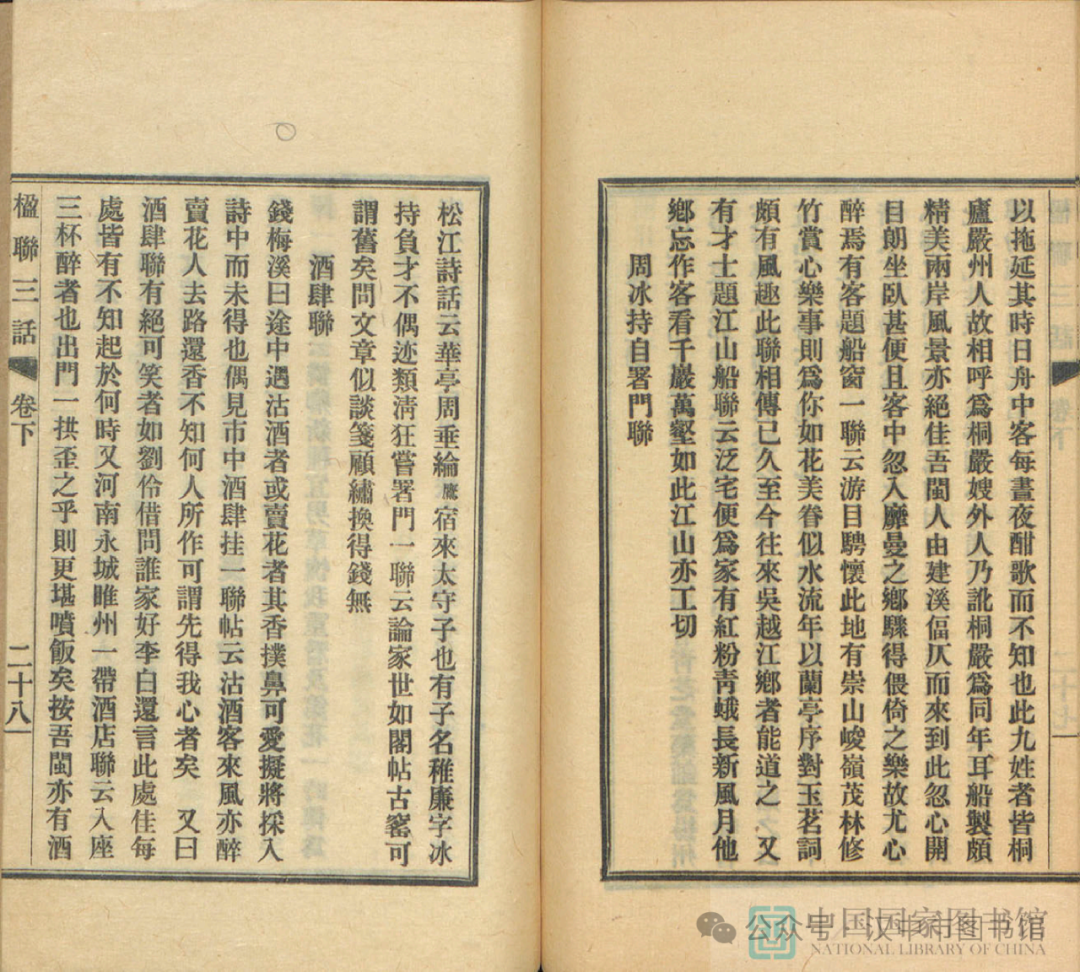 以拖延其時日舟中客每晝夜酣歌而不知也此九姓者皆桐
廬嚴州人故相呼爲桐嚴嫂外人乃訛桐嚴爲同年耳船製頗
精美兩岸風景亦絕佳吾閩人由建溪偪仄而來到此忽心開
目朗坐臥甚便且客中忽入靡曼之鄉驟得偎倚之樂故尤心
醉焉有客題船窗一聯云游目騁懷此地有崇山峻嶺茂林修
竹賞心樂事則爲你如花美眷似水流年以蘭亭序對玉茗詞
頗有風趣此聯相傳已久至今往來吳越江鄉者能道之 又
有才士題江山船聯云泛宅便爲家有紅粉靑蛾長新風月他
鄉忘作客看千巖萬壑如此江山亦工切
周冰持自署門聯
松江詩話云華亭周垂綸鷹宿來太守子也有子名稚廉字冰
持負才不偶迹類淸狂嘗署門一聯云論家世如閣帖古窰可
謂舊矣問文章似談箋顧繡換得錢無
酒肆聯
錢梅溪曰途中遇沽酒者或賣花者其香撲鼻可愛擬將採入
詩中而未得也偶見市中酒肆挂一聯帖云沽酒客來風亦醉
賣花人去路還香不知何人所作可謂先得我心者矣 又曰
酒肆聯有絕可笑者如劉伶借問誰家好李白還言此處佳每
處皆有不知起於何時又河南永城睢州一帶酒店聯云入座
三杯醉者也出門一拱歪之乎則更堪噴飯矣按吾閩亦有酒
楹聯三話 卷下 二十八
公众号·汉中市图书馆
中国国家图书馆
NATIONAL LIBRARY OF CHINA